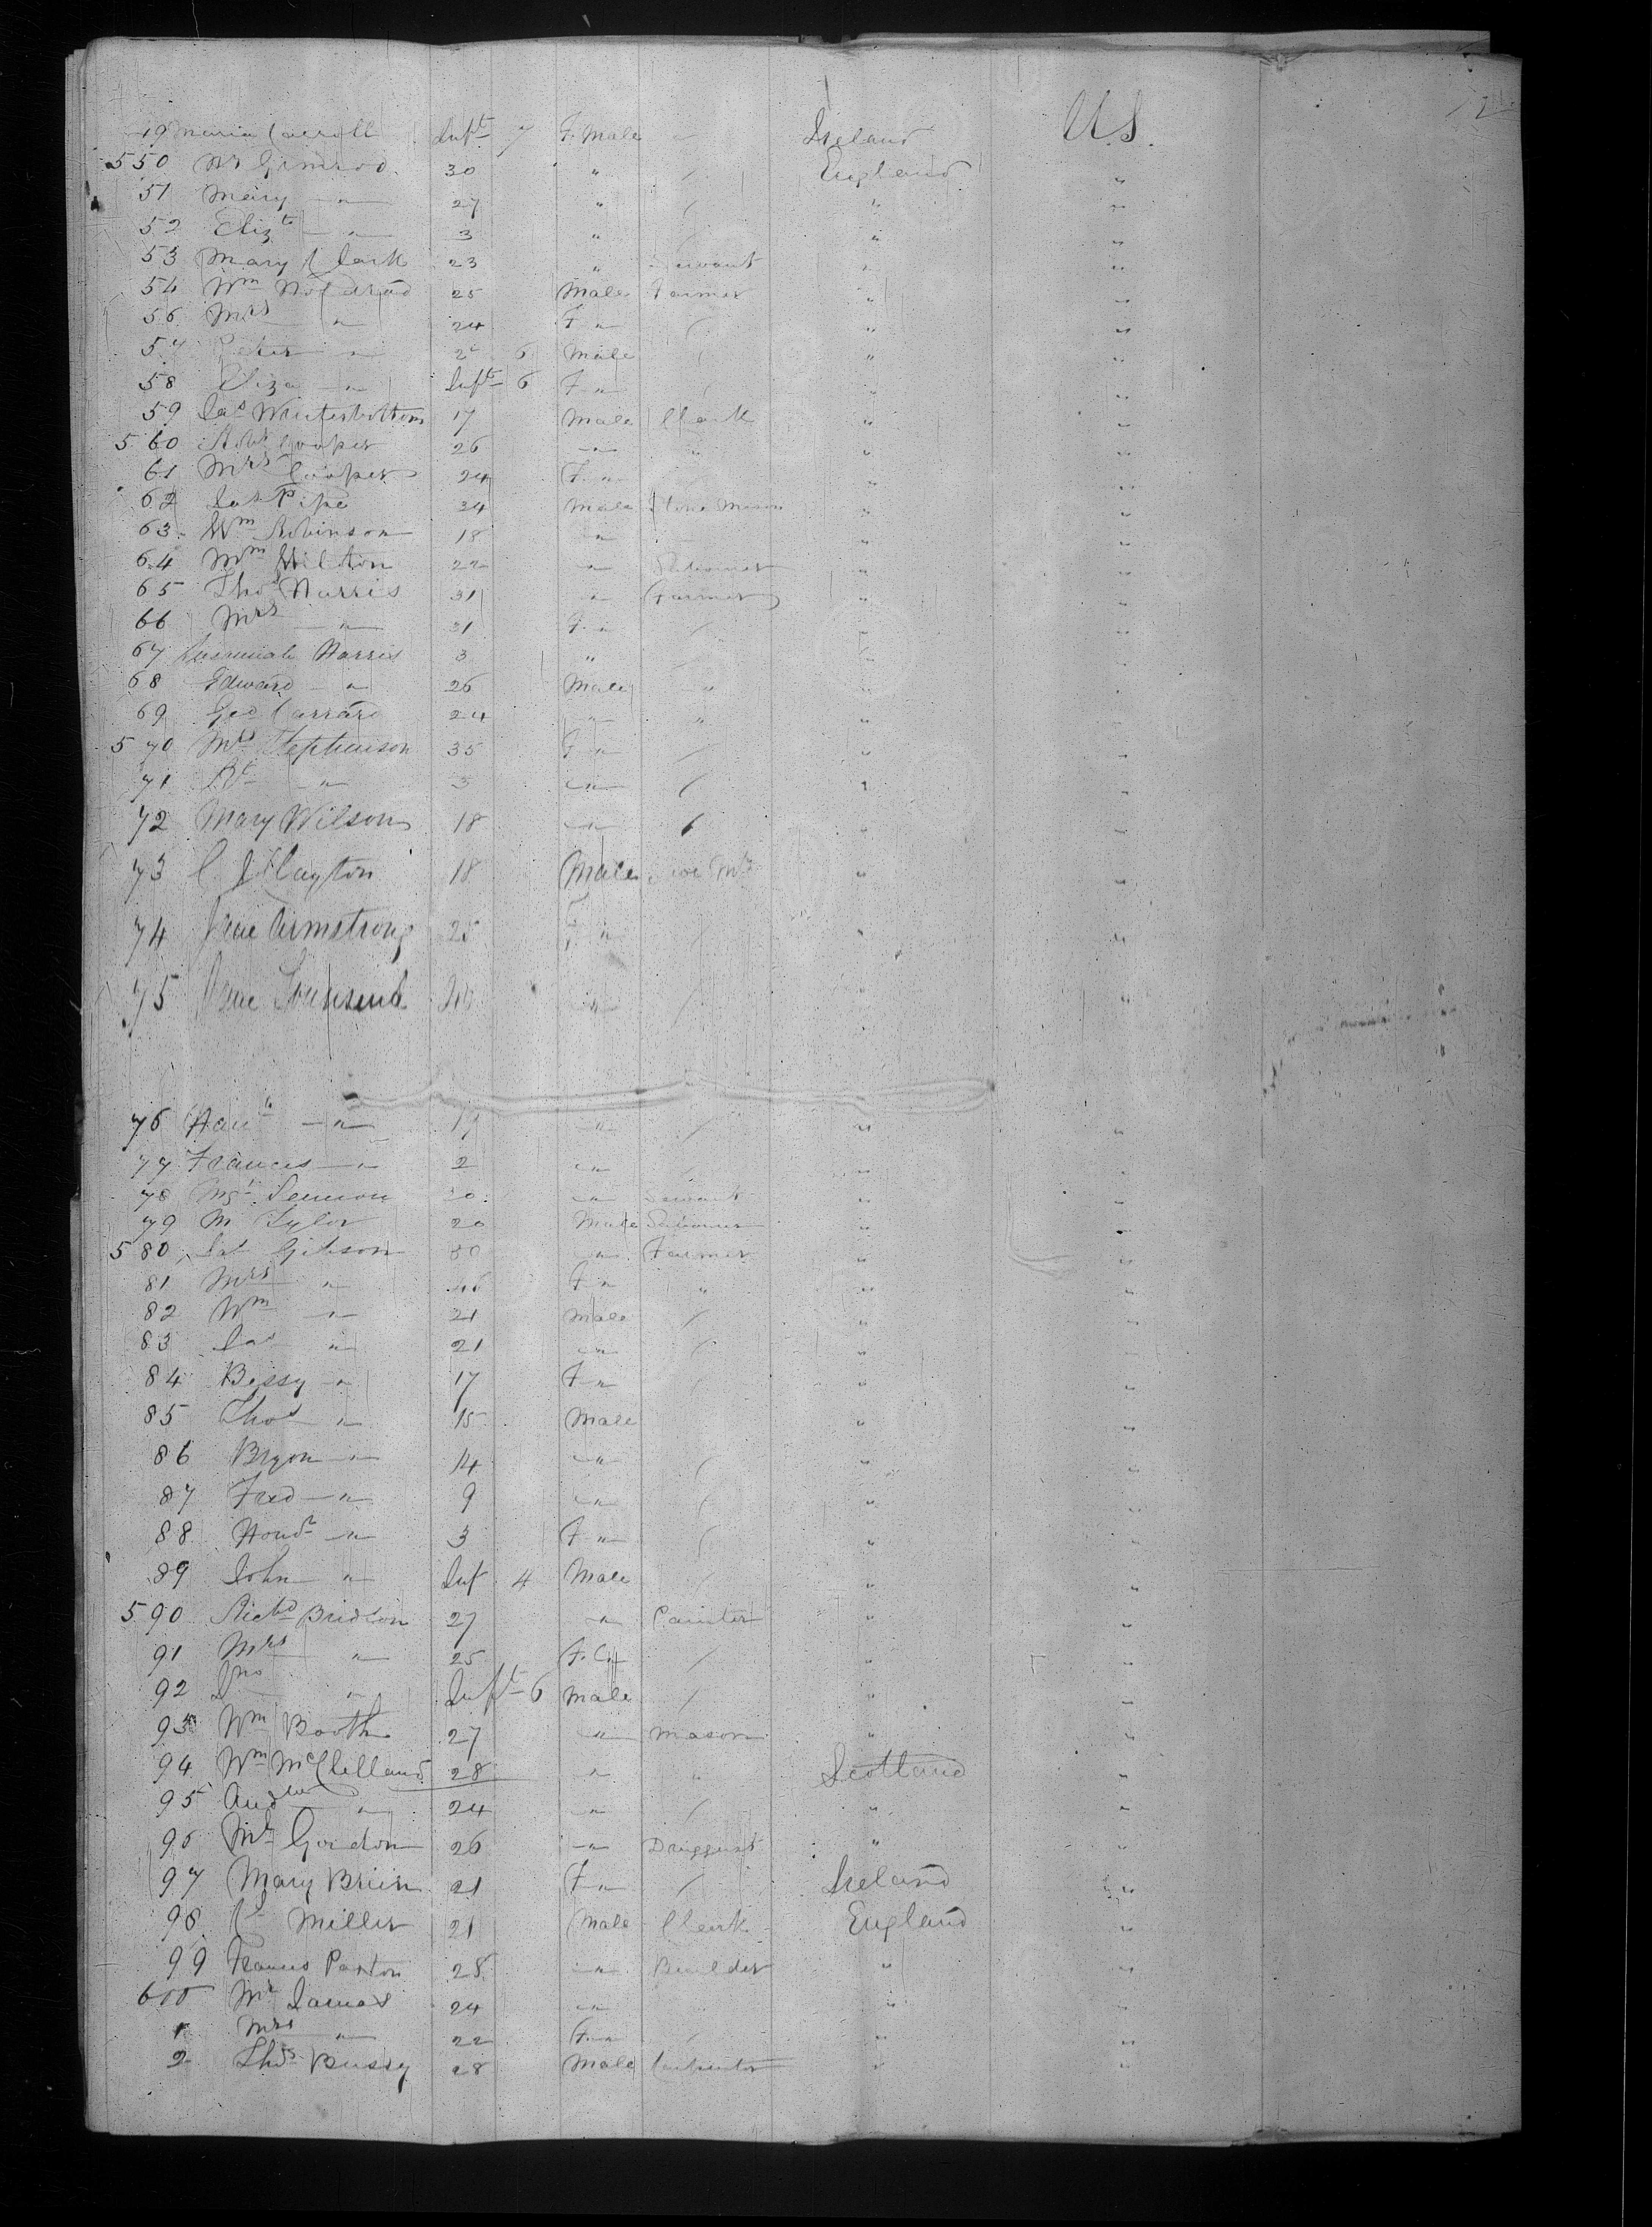 12
U.S.
49 Maria Carroll Inft 7 F. Male " Ireland
550 Grimrod 30 " / England "
51 Mary " 27 " / " "
52 Elizth " 3 " / " "
53 Mary Clark 23 " Servant " "
54 Wm 25 Male Farmer " "
56 Mrs " 24 F " / " "
57 Peter " 2 6 Male / " "
58 Eliza " Inft 6 F " / " "
59 Jas Winterbottom 17 Male Clerk " "
560 Robt Cooper 26 " " " "
61 Mrs Cooper 24 F " / " "
62 Jas Pipe 34 Male Stone Mason " "
63 Wm Robinson 18 " " "
64 Wm Hilton 22 " Labourer " "
65 Thos Harris 31 " Farmer " "
66 Mrs " 31 F " / " "
67 Harris 3 " / " "
68 Edward " 26 Male " " "
69 Geo Carrard 24 " " " "
570 Mrs Stephenson 35 F " / " "
71 " 3 " / " "
72 Mary Wilson 18 " / " "
73 C J Clayton 18 Male " "
74 Jane Armstrong 25 F " / " "
75 Jane Townsend " / " "
76 " 19 " / " "
77 Frances " 2 " / " "
78 " Servant " "
79 M Tylor 20 Male Labourer " "
580 Jas Gibson 50 " Farmer " "
81 Mrs " 46 F " " " "
82 Wm " 21 Male / " "
83 Jas " 21 " / " "
84 Bessy " 17 F " " "
85 Thos " 15 Male " "
86 Bryon " 14 " / " "
87 Fred " 9 " / " "
88 " 3 F " / " "
89 John " Inf 4 Male / " "
590 Richd Bridson 27 " Painter " "
91 Mrs " 25 F. " / " "
92 Jno " Inft 6 Male / " "
93 Wm Booth 27 " Mason " "
94 Wm McClelland 28 " " Scotland "
95 Andw " 24 " / " "
96 Mr Gordon 26 " Druggist " "
97 Mary Brien 21 F " / Ireland "
98 Miller 21 Male Clerk England "
99 Francis Paxton 28 " Builder " "
600 Mr James 24 " " "
1 Mrs " 22 F " / " "
2 Thos Bussy 28 Male Carpenter " "